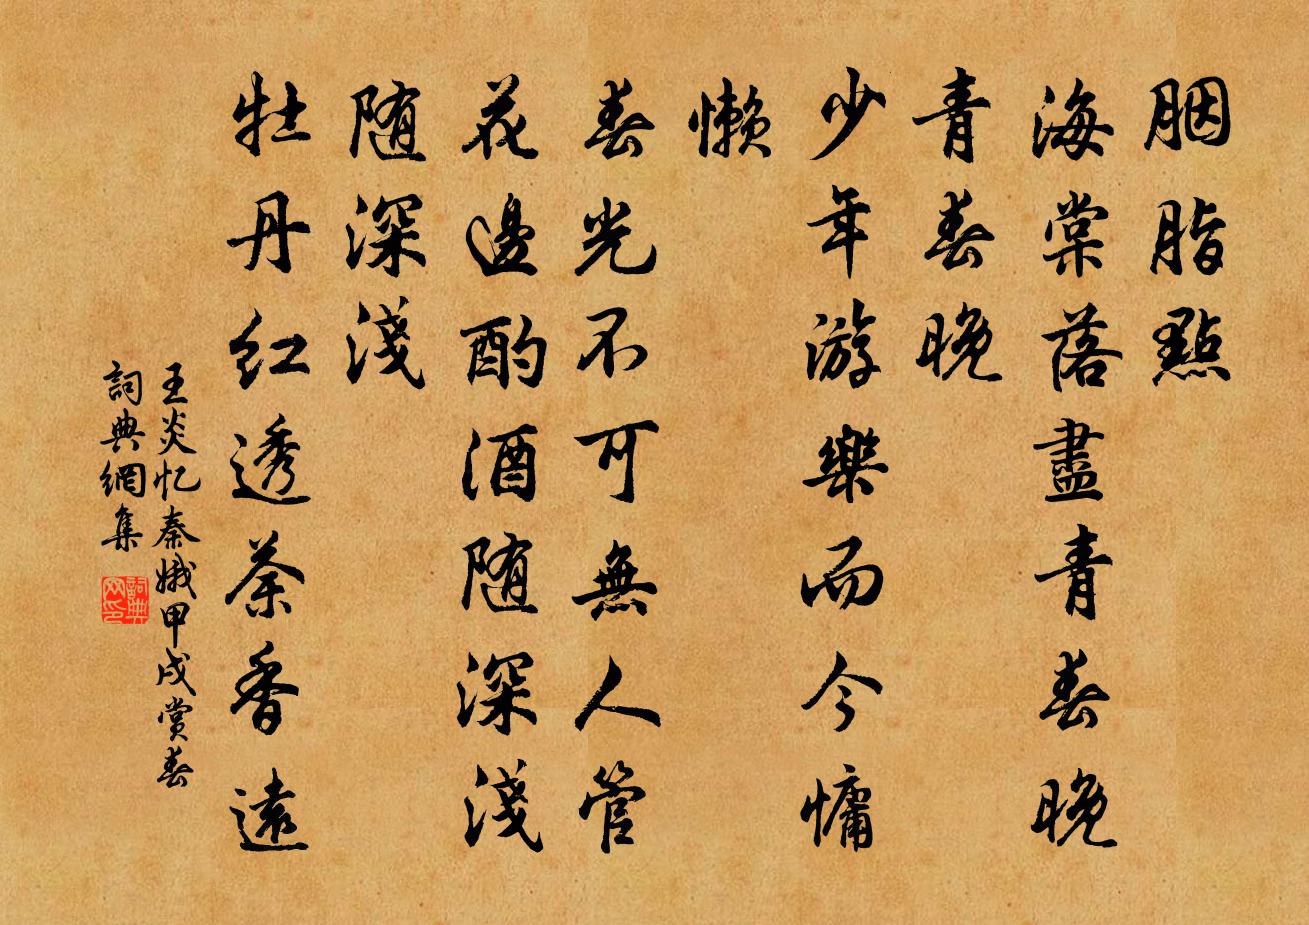 胭脂點
海棠落盡青春晚
青春晚
少年游樂而今慵
懶
春光不可無人管
花邊酌酒随深淺
随深淺
牡丹红透荼香遠
王炎忆秦娥甲戌赏春
詞典網集
詞典网印